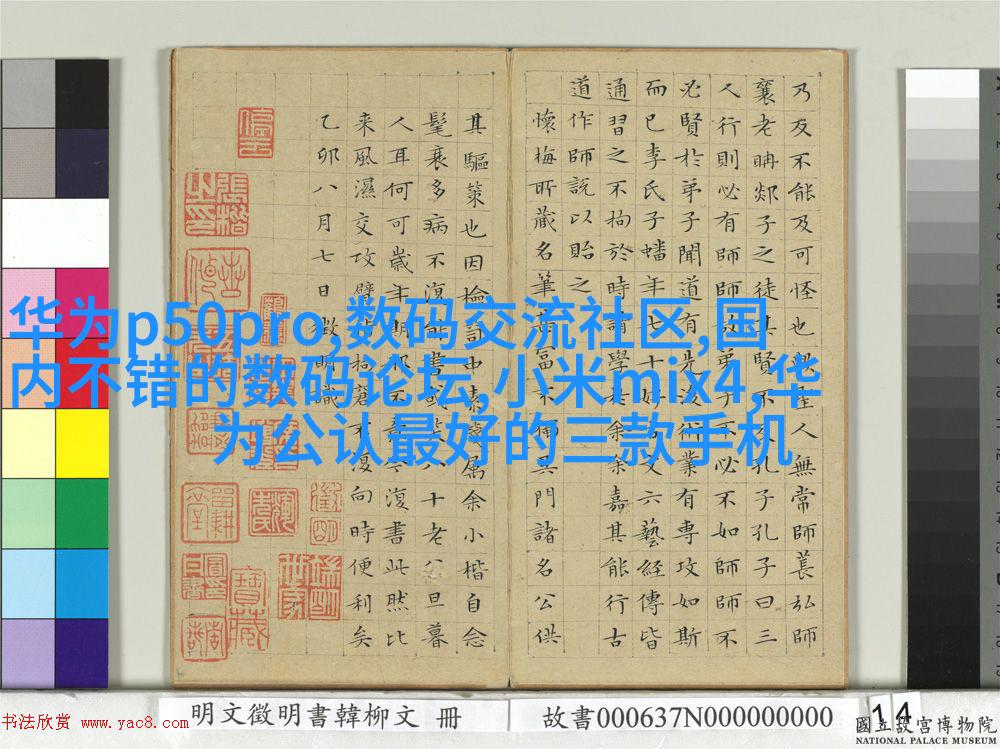 华为p50pro,数码交流社区,国
内不错的数码论坛,小米mix4,华
为公认最好的三款手机
乃反不能及可怪也歟聖人無常師萇弘師
襄老聃郯子之徒其賢不及孔子孔子曰三
人行則必有師師故弟子不必不如師師不
必賢於弟子聞道有先後術業有專攻如斯
而已李氏子蟠年七十好古文六藝經傳皆
通習之不拘於時請學於余余嘉其能行古
道作師說以貽之
懷梅所藏名筆甚富不獨吳門諸名公供
其驅策也因檢討中素屬余小楷自念
髦衰多病不復能書或笑八十老公旦暮
人耳何可歲年期邪不今復書此然比
来風濕交攻臂指窘不復向時便利矣
乙卯八月七日 徵明識
明文徵明書韓柳文 冊
故書000637N000000000
14
书法欣赏 www.yac8.com
國立故宮博物院
NATIONAL PALACE MUSEUM